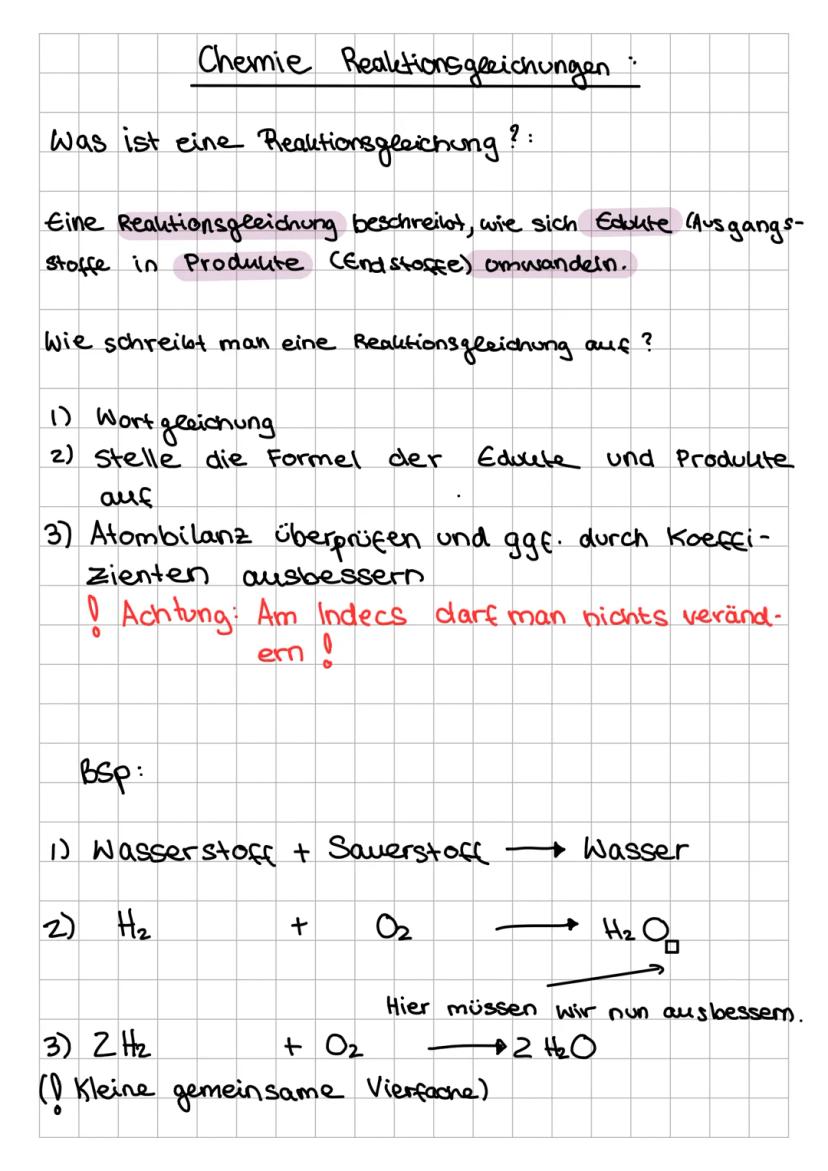 Chemie Reaktionsgleichungen :
Was ist eine Reaktionsgleichung?:
Eine Reaktionsgleichung beschreibt, wie sich Edukte (Ausgangs-
stoffe in Produkte (Endstoffe) omwandeln.
Wie schreibt man eine Reaktionsgleichung auf?
1) Wortgleichung
2) Stelle die Formel der Edukte und Produkte
auf
3) Atombilanz überprüfen und ggf. durch Koeffi-
zienten ausbessern
! Achtung: Am Indecs darf man nichts veränd-
ern !
Bsp:
1) Wasserstoff + Sauerstoff → Wasser
2) H₂ + O₂ → H₂O□
Hier müssen wir nun ausbessern.
3) 2 H₂ + O₂ → 2 H₂O
(! Kleine gemeinsame Vierfache)